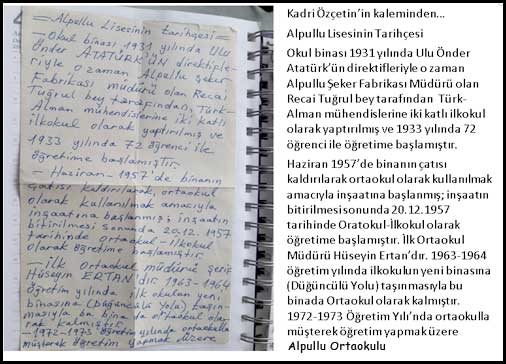 =Alpullu Lisesinin tarihçesi=
—Okul binası 1931 yılında Ulu
Önder ATATÜRK'ÜN direktifle-
riyle o zaman Alpullu şeker-
Fabrikası müdürü olan Recai
Tuğrul bey tarafından, Türk-
Alman mühendislerine iki katlı
ilkokul olarak yaptırılmış ve
1933 yılında 72 öğrenci ile
öğretime başlamıştır
—Haziran-1957'de binanın
çatısı kaldırılarak, ortaokul
olarak kullanılmak amacıyla
inşaatına başlanmış; inşaatın
bitirilmesi sonunda 20.12.1957
tarihinde ortaokul-ilkokul
olarak öğretime başlamıştır.
—ilk ortaokul müdürü
Hüseyin ERTAN'dır 1963-1964
öğretim yılında ilk okulun yeni
binasına (Düğüncülü Yolu) taşın-
masıyla bu bina da ortaokul ola-
rak kalmıştır.
—1972-1973 öğretim yılında ortaokulla
müşterek öğretim yapmak üzere
Kadri Özçetin'in kaleminden...
Alpullu Lisesinin Tarihçesi
Okul binası 1931 yılında Ulu Önder
Atatürk'ün direktifleriyle o zaman
Alpullu Şeker Fabrikası Müdürü olan
Recai Tuğrul bey tarafından Türk-
Alman mühendislerine iki katlı ilkokul
olarak yaptırılmış ve 1933 yılında 72
öğrenci ile öğretime başlamıştır.
Haziran 1957'de binanın çatısı
kaldırılarak ortaokul olarak kullanılmak
amacıyla inşaatına başlanmış; inşaatın
bitirilmesi sonunda 20.12.1957
tarihinde Oratokul-İlkokul olarak
öğretime başlamıştır. İlk Ortaokul
Müdürü Hüseyin Ertan'dır. 1963-1964
öğretim yılında ilkokulun yeni binasına
(Düğüncülü Yolu) taşınmasıyla bu
binada Ortaokul olarak kalmıştır.
1972-1973 Öğretim Yılı'nda ortaokulla
müşterek öğretim yapmak üzere
Alpullu Ortaokulu